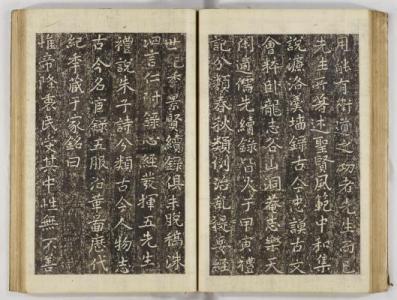 用功有衛道之功者先生而已
先生所著述聖賢風範中和集
說濂洛羹墻錄古今忠謨古文
會粹臥龍志谷山洞菴志樂天
閑適儒先續錄皆火于甲寅禮
記分類春秋類例治亂提要經
世紀年景賢續錄俱未脫稿洙
泗言仁附錄心經發揮五先生
禮說朱子詩分類古今人物志
古今名宦錄五服沿革圖歷代
紀年藏于家銘曰
惟帝降衷民失其中性無不善